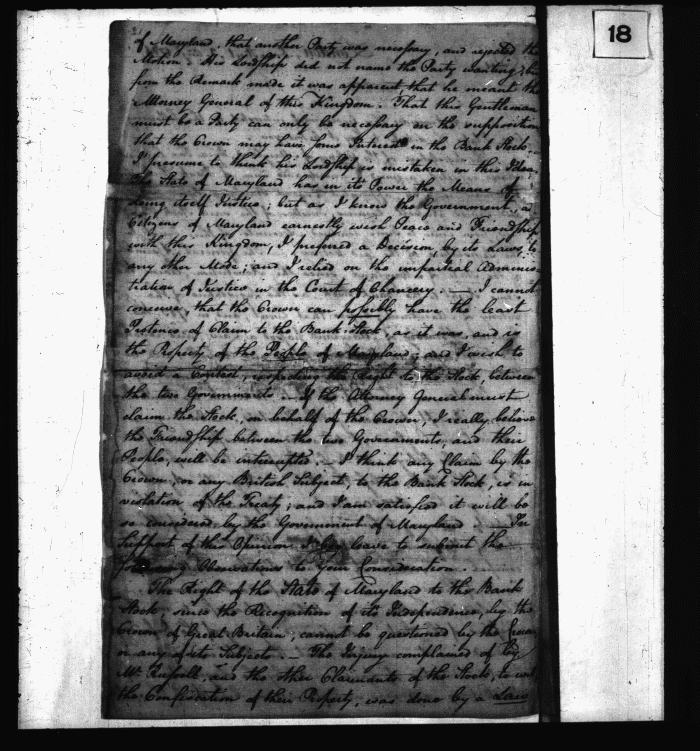 18
of Maryland that another Party was necessary, and rejected the
Motion. His Lordship did not name the Party wanting; but
from the Remark made it was apparent, that he meant the
Attorney General of this Kingdom. That this Gentleman
must be a Party can only be necessary on the supposition
that the Crown may have some Interest in the Bank Stock.
I presume to think his Lordship is mistaken in this Idea.
The State of Maryland has in its Power the Means of
doing itself Justice; but as I know the Government, and
Citizens of Maryland earnestly wish Peace and Friendship
with this Kingdom, I prefered a Decision, by its Laws, to
any other Mode; and I relied on the impartial Adminis
tration of Justice in the Court of Chancery. — I cannot
conceive, that the Crown can possibly have the least
Pretence of Claim to the Bank-Stock, as it was, and is
the Property of the People of Maryland; and I wish to
avoid a Contest, respecting the Right to the Stock, between
the two Governments. — If the Attorney General must
claim the Stock, on behalf of the Crown, I really believe
the Friendship between the two Governments, and their
People, will be interrupted. — I think any Claim by the
Crown, or any British Subject, to the Bank Stock, is in
violation of the Treaty; and I am satisfied it will be
so considered by the Government of Maryland — In
Support of this Opinion I beg leave to submit the
following Observations to Your Consideration. —
The Right of the State of Maryland to the Bank
Stock, since the Recognition of its Independence, by the
Crown of Great Britain, cannot be questioned by the Crown
or any of its Subjects. — The Injury complained of by
Mr. Russell, and the other Claimants of the Stock, to wit
the Confiscation of their Property, was done by a Law